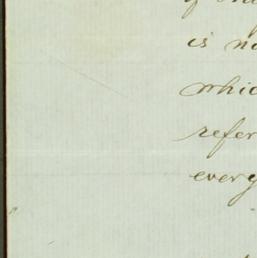 is no
which
refer
every